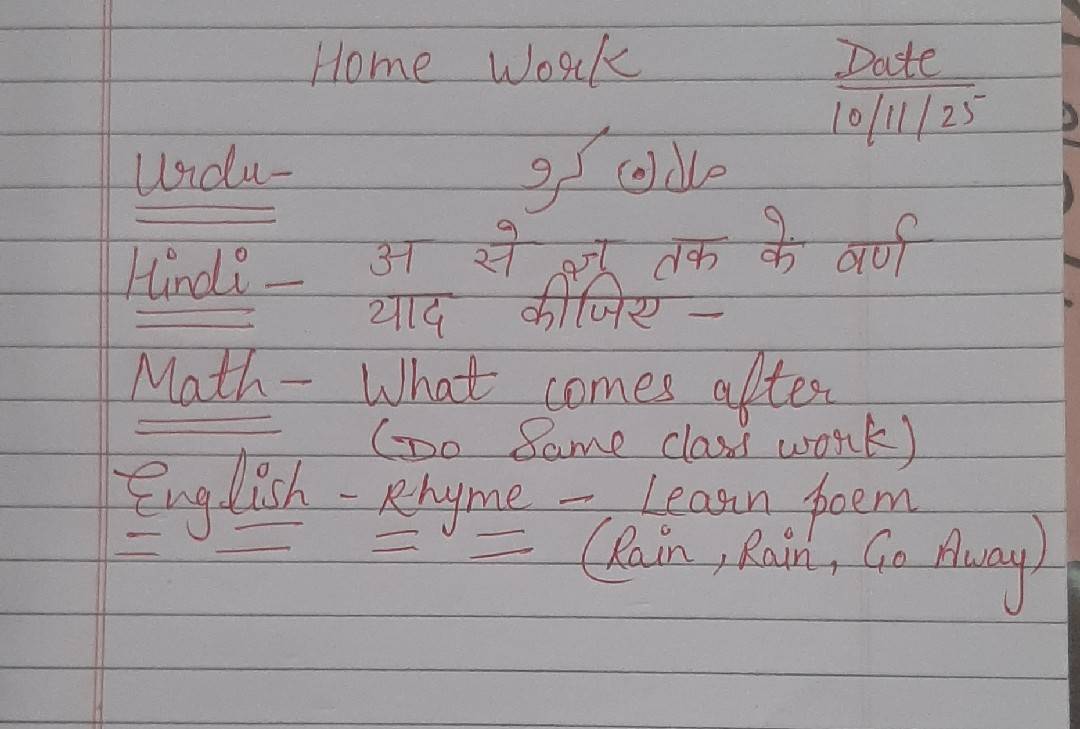 Home Work
Date
10/11/25
Urdu-
Hindi - अ से ज्ञ तक के वर्ण
याद कीजिए -
Math - What comes after
(Do Same class work)
English - Rhyme - Learn poem
(Rain, Rain, Go Away)